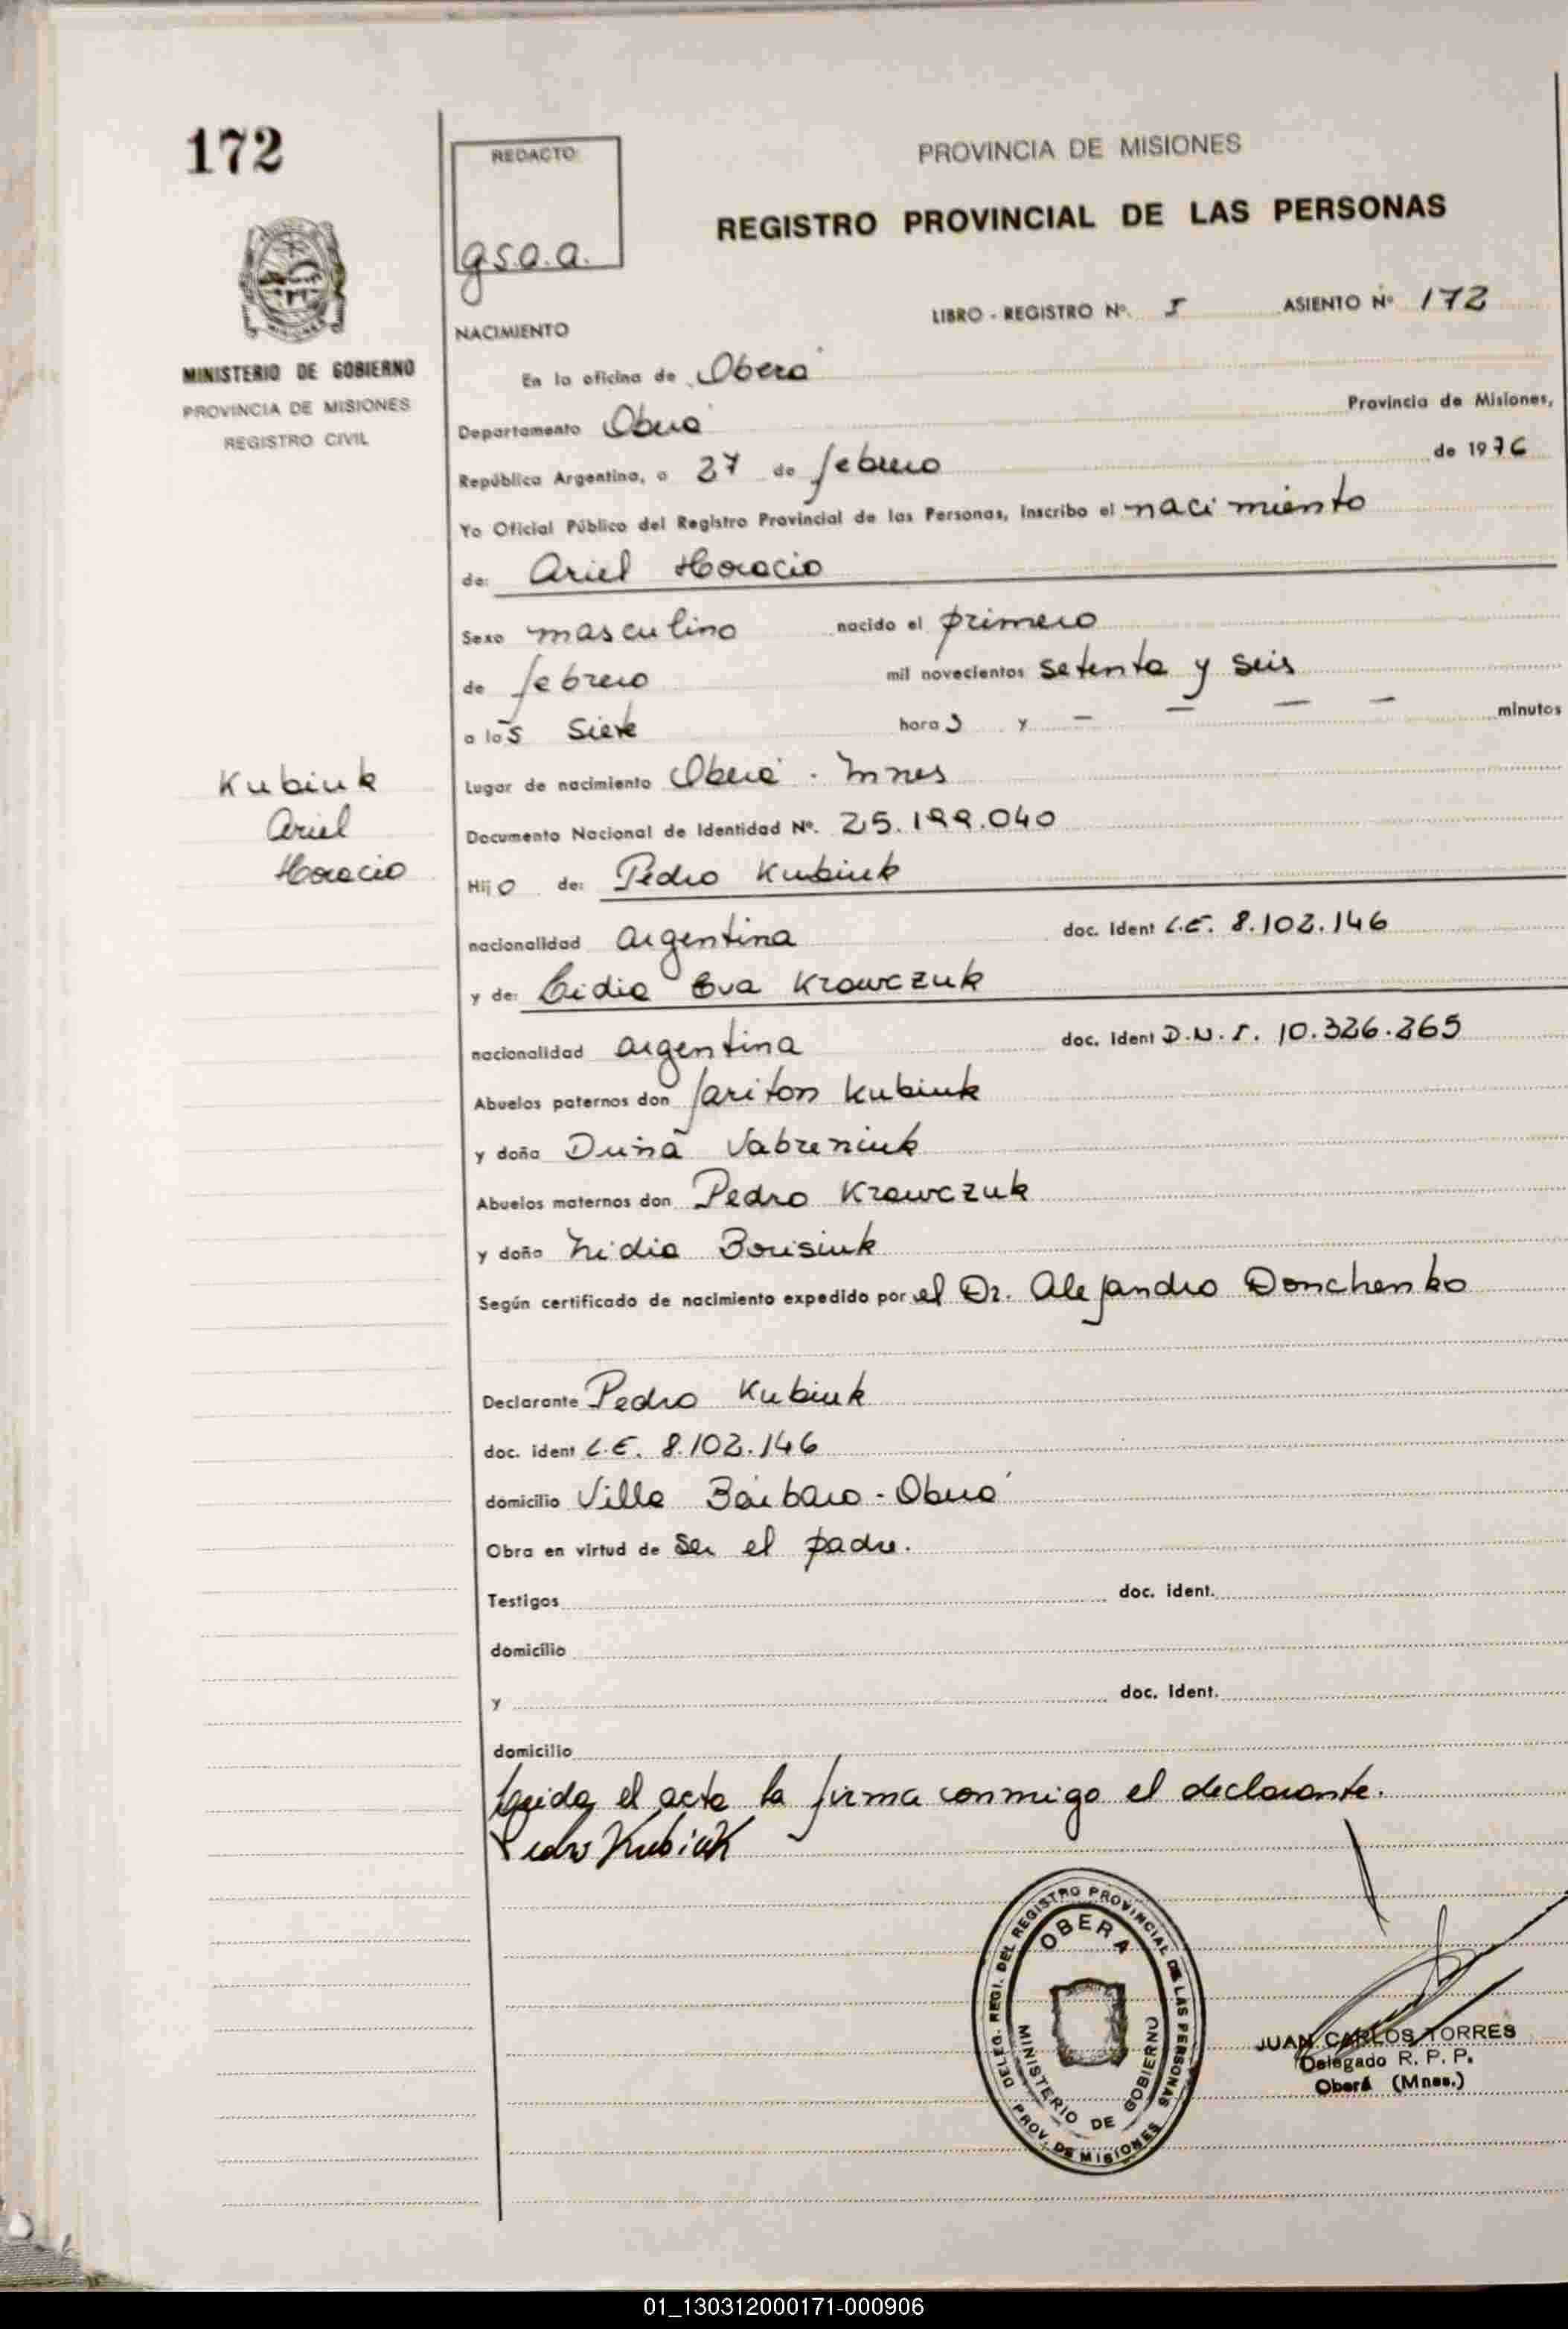 172
REDACTO
g.s.a.a.
PROVINCIA DE MISIONES
REGISTRO PROVINCIAL DE LAS PERSONAS
LIBRO - REGISTRO Nº. I ASIENTO Nº 172
NACIMIENTO
MINISTERIO DE GOBIERNO
PROVINCIA DE MISIONES
REGISTRO CIVIL
En la oficina de Oberá
Departamento Oberá Provincia de Misiones,
República Argentina, a 27 de febrero de 1976
Yo Oficial Público del Registro Provincial de las Personas, inscribo el nacimiento
de: Ariel Horacio
Sexo masculino nacido el primero
de febrero mil novecientos setenta y seis
a las siete horas y — — — — minutos
Lugar de nacimiento Oberá - Mnes
Kubiuk
Ariel
Horacio
Documento Nacional de Identidad Nº. 25.199.040
Hijo de: Pedro Kubiuk
nacionalidad argentina doc. Ident L.E. 8.102.146
y de: Lidia Eva Krawczuk
nacionalidad argentina doc. Ident D.N.I. 10.326.265
Abuelos paternos don Jariton Kubiuk
y doña Duña Vabreniuk
Abuelos maternos don Pedro Krawczuk
y doña Nidia Borisiuk
Según certificado de nacimiento expedido por el Dr. Alejandro Donchenko
Declarante Pedro Kubiuk
doc. ident L.E. 8.102.146
domicilio Villa Bárbaro - Oberá
Obra en virtud de ser el padre.
Testigos doc. ident.
domicilio
y doc. ident.
domicilio
Leída el acta la firma conmigo el declarante.
Pedro Kubiuk
DELEG. REGI. DEL REGISTRO PROVINCIAL DE LAS PERSONAS
OBERA
MINISTERIO DE GOBIERNO
PROV. DE MISIONES
JUAN CARLOS TORRES
Delegado R. P. P.
Oberá (Mnes.)
01_130312000171-000906